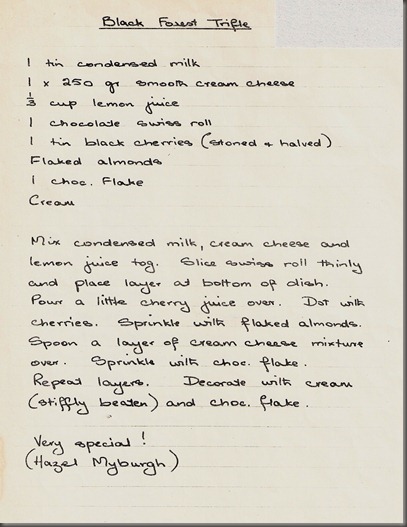 Black Forest Trifle
1 tin condensed milk
1 x 250 gr smooth cream cheese
1/3 cup lemon juice
1 chocolate swiss roll
1 tin black cherries (stoned + halved)
Flaked almonds
1 choc. Flake
Cream
Mix condensed milk, cream cheese and
lemon juice tog. Slice swiss roll thinly
and place layer at bottom of dish.
Pour a little cherry juice over. Dot with
cherries. Sprinkle with flaked almonds.
Spoon a layer of cream cheese mixture
over. Sprinkle with choc. flake.
Repeat layers. Decorate with cream
(stiffly beaten) and choc. flake.
Very special!
(Hazel Myburgh)